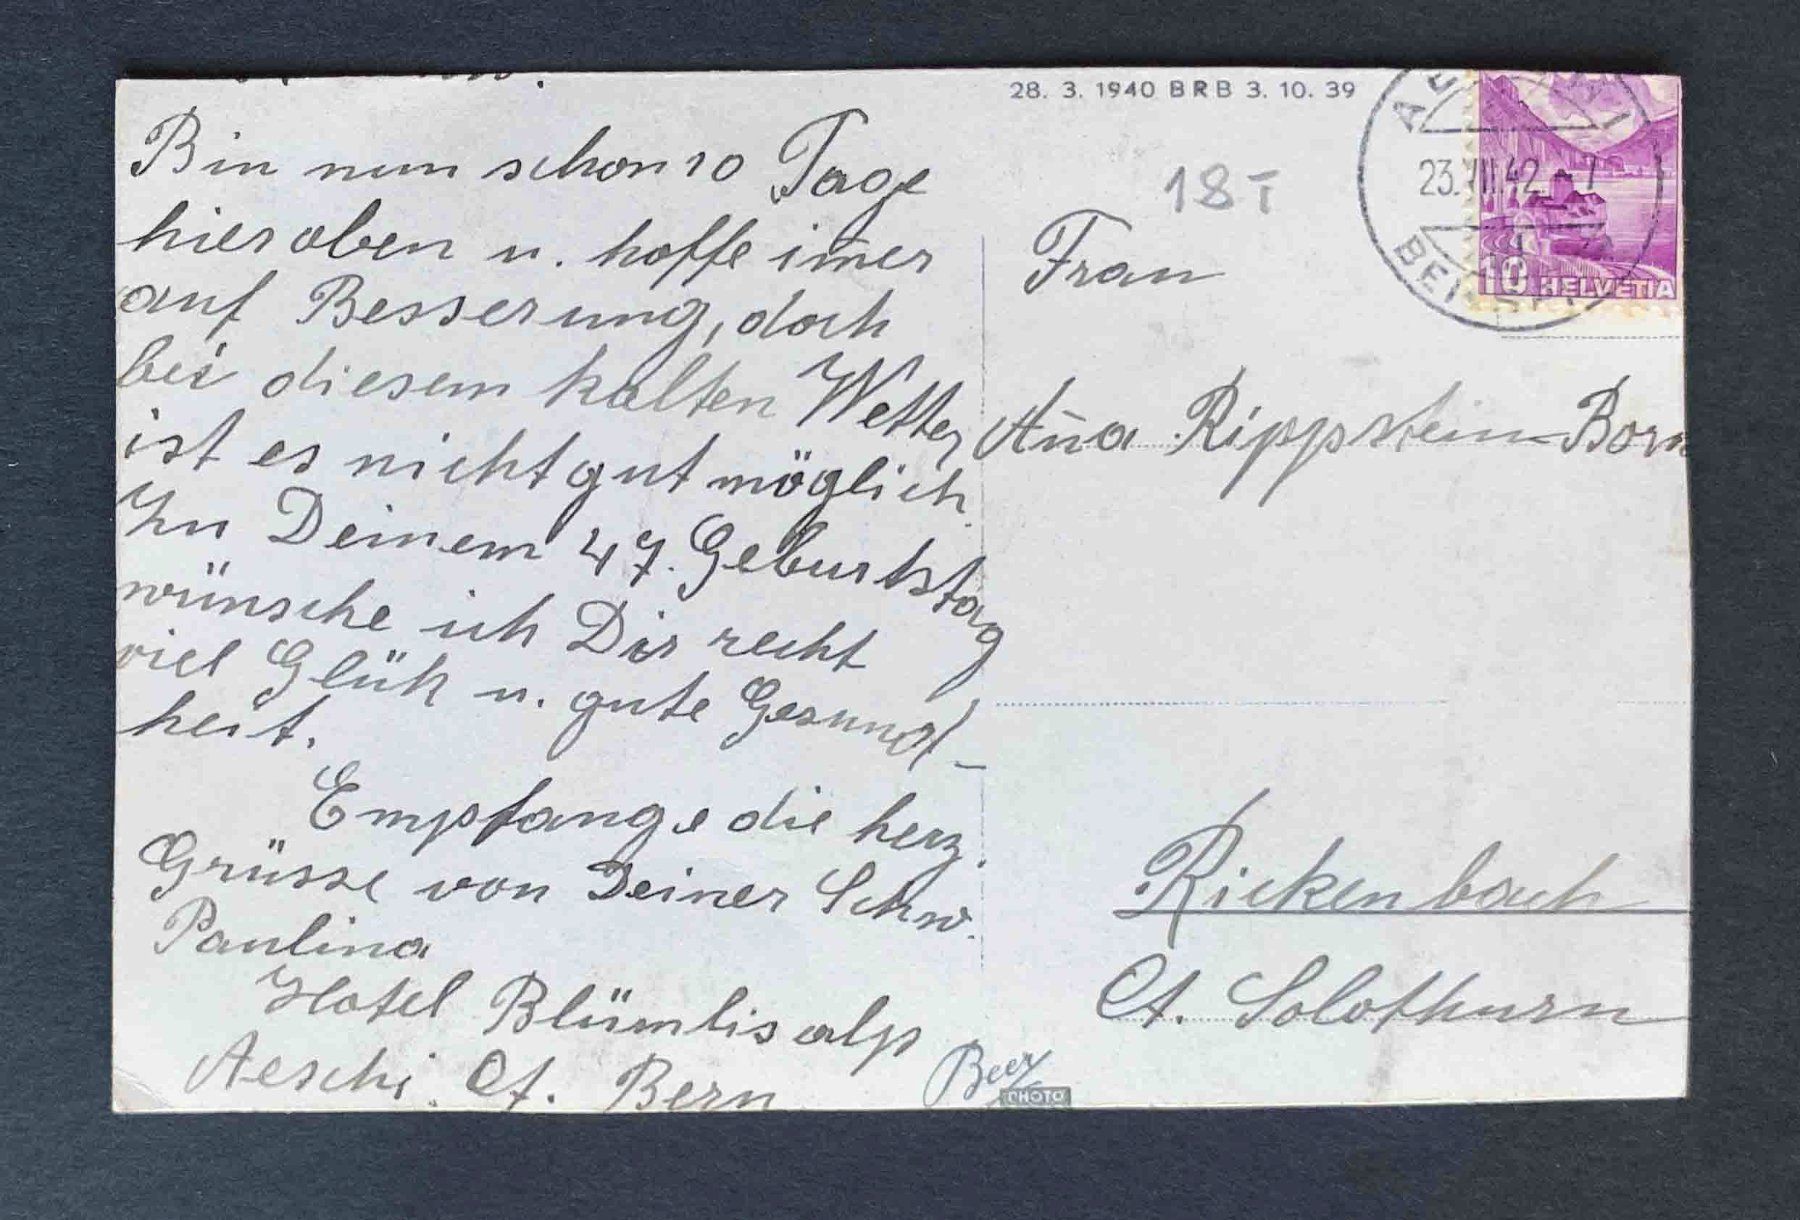 Bin nun schon 10 Tage
hier oben u. hoffe im̄er
auf Besserung, doch
bei diesem kalten Wetter
ist es nicht gut möglich.
Zu Deinem 47. Geburtstag
wünsche ich Dir recht
viel Glük u. gute Gesund-
heit.
Empfange die herz.
Grüsse von Deiner Schw.
Paulina
Hotel Blümlisalp
Aeschi. Ct. Bern
28. 3. 1940 BRB 3. 10. 39
18 T
23.VII.42. 7
BEI
10 HELVETIA
Frau
An̄a Rippstein-Born
Rickenbach
Ct. Solothurn
Beer
PHOTO